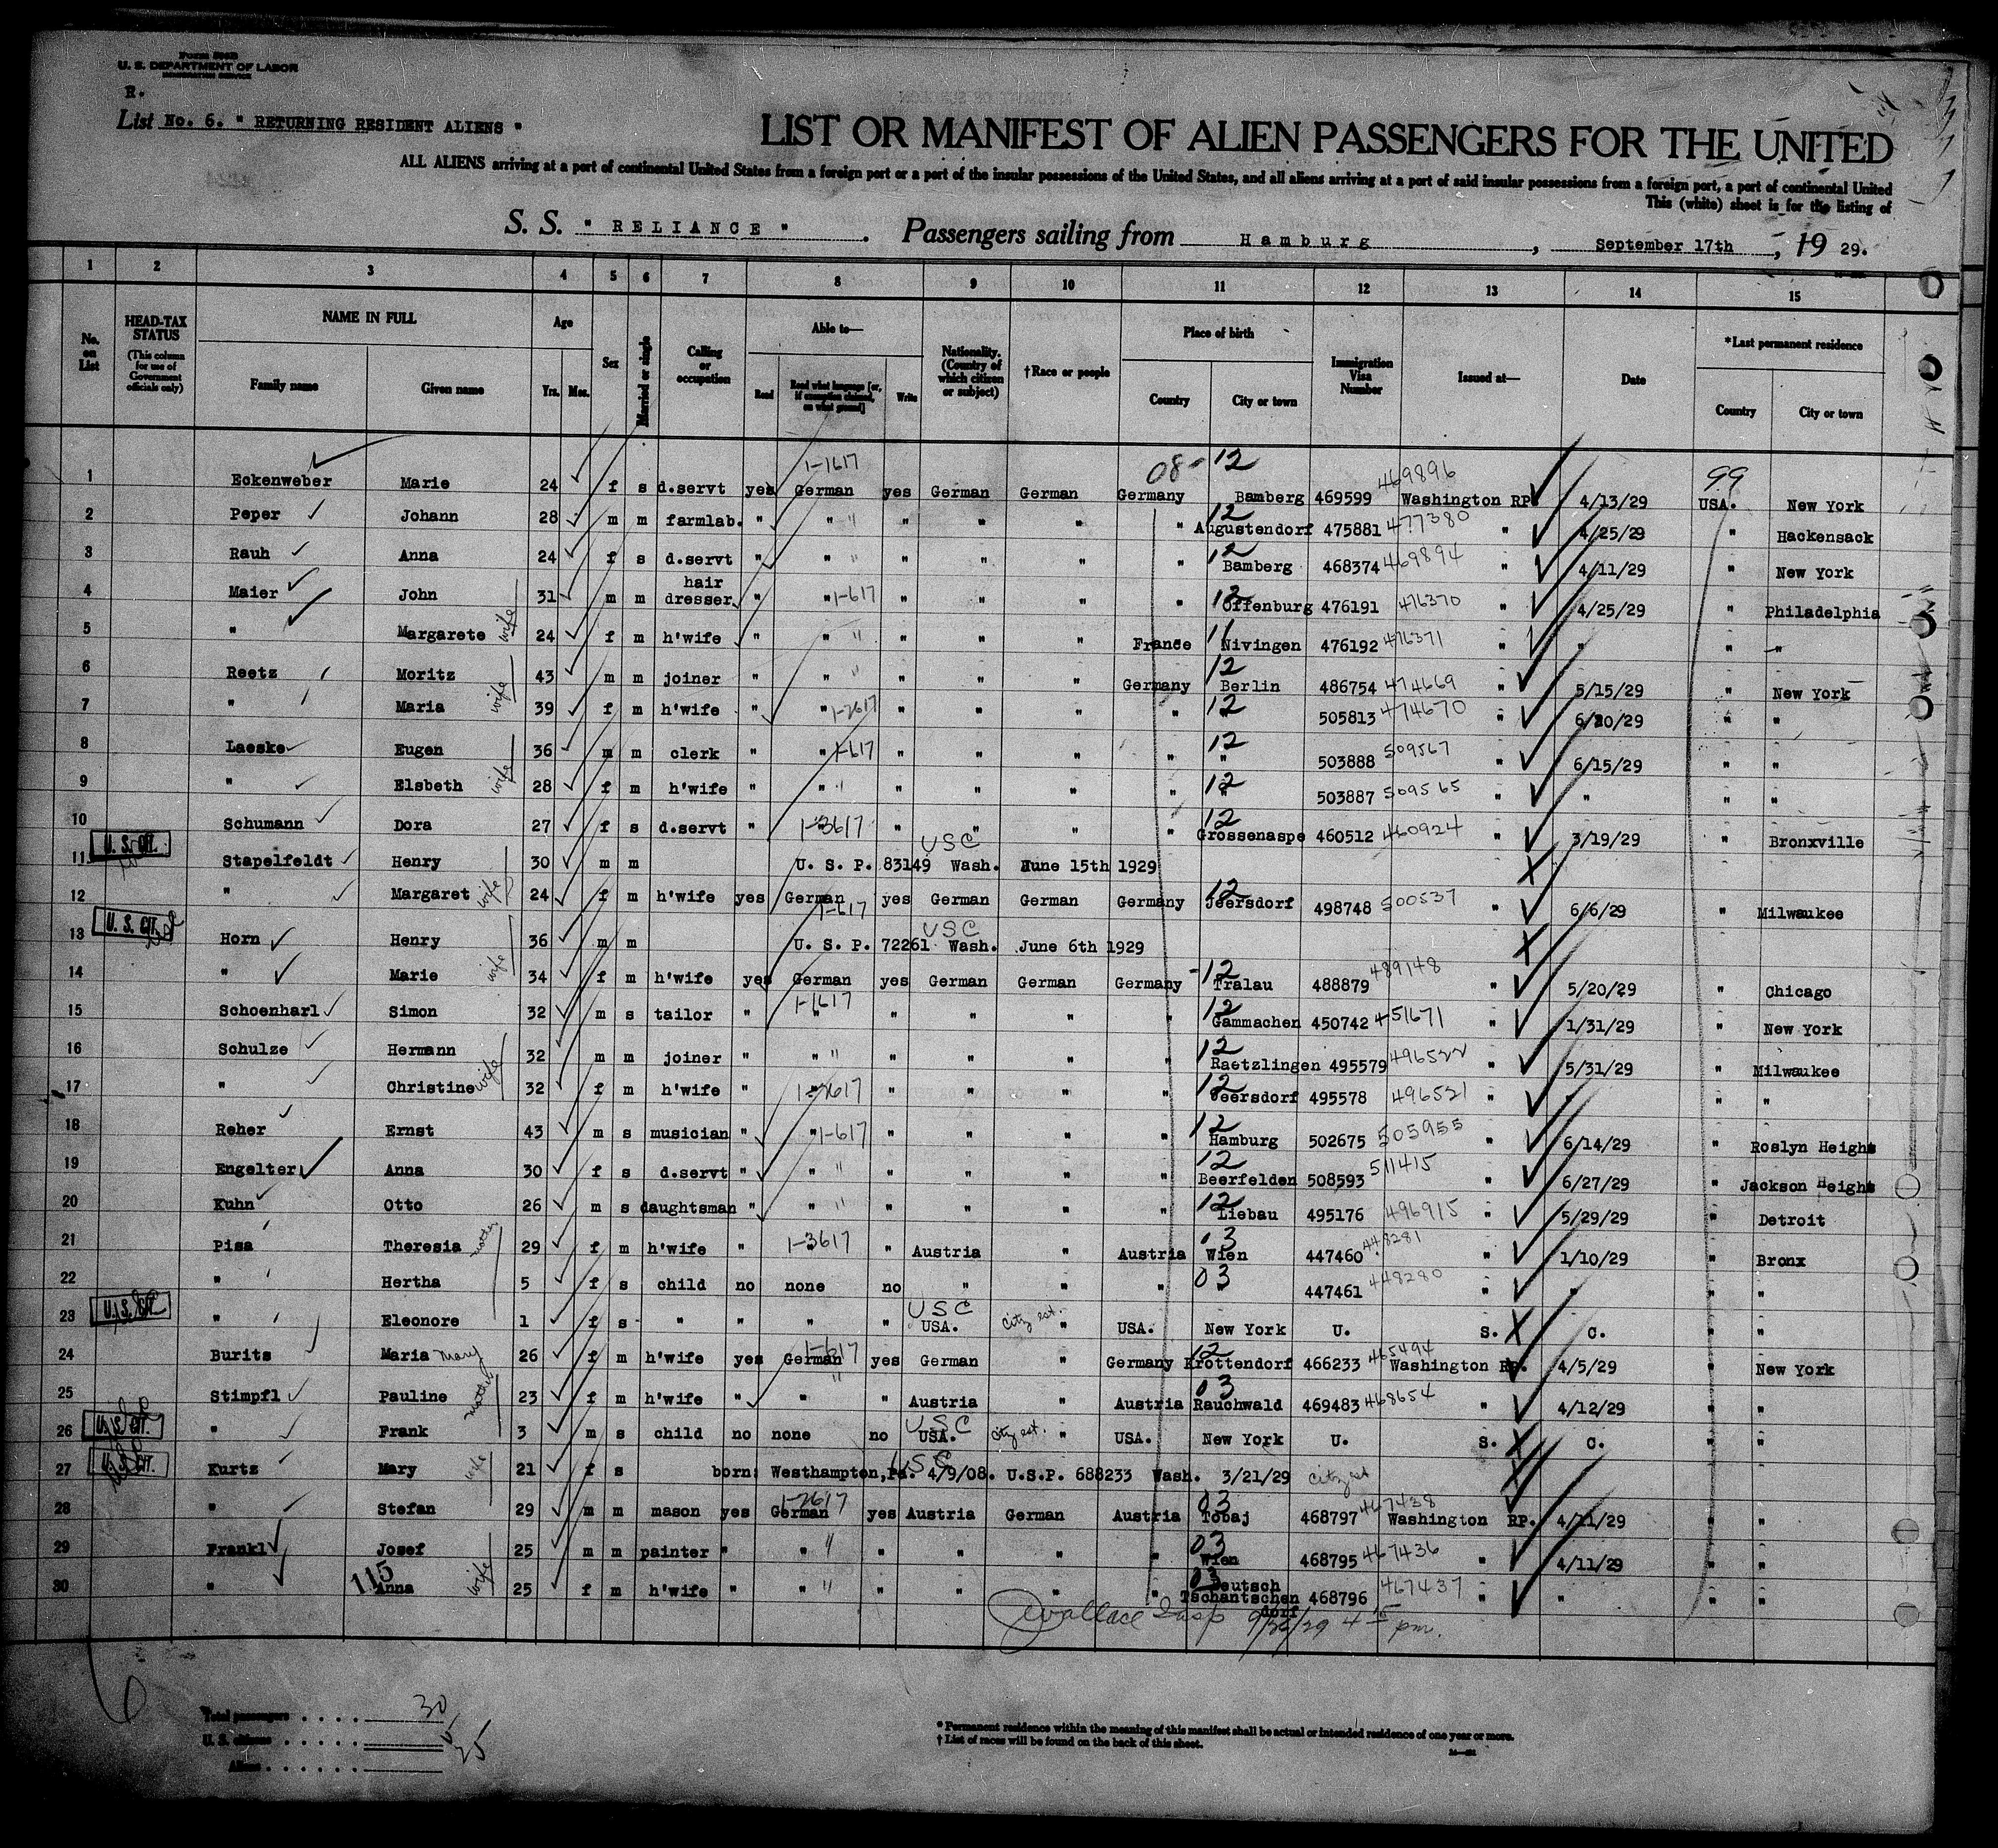 Form 500B
U. S. DEPARTMENT OF LABOR
IMMIGRATION SERVICE
R.
List No. 6. " RETURNING RESIDENT ALIENS "
LIST OR MANIFEST OF ALIEN PASSENGERS FOR THE UNITED
ALL ALIENS arriving at a port of continental United States from a foreign port or a port of the insular possessions of the United States, and all aliens arriving at a port of said insular possessions from a foreign port, a port of continental United
This (white) sheet is for the listing of
S. S. " RELIANCE " . Passengers sailing from Hamburg , September 17th , 19 29.
1 2 3 4 5 6 7 8 9 10 11 12 13 14 15
No. on List HEAD-TAX STATUS (This column for use of Government officials only) NAME IN FULL Family name Given name Age Yrs. Mos. Sex Married or single Calling or occupation Able to— Read Read what language [or, if exemption claimed, on what ground] Write Nationality. (Country of which citizen or subject) †Race or people Place of birth Country City or town Immigration Visa Number Issued at— Date *Last permanent residence Country City or town
1-1617 08- 12 469896 99
1 Eckenweber Marie 24 f s d.servt yes German yes German German Germany Bamberg 469599 Washington RP. 4/13/29 USA. New York
2 Peper Johann 28 m m farmlab. " " " " " " " 12 Augustendorf 475881 477380 " 4/25/29 " Hackensack
3 Rauh Anna 24 f s d.servt " " " " " " " 12 Bamberg 468374 469894 " 4/11/29 " New York
4 Maier John 31 m m hair dresser " " 1-617 " " " " 12 Offenburg 476191 476370 " 4/25/29 " Philadelphia
5 " Margarete wife 24 f m h'wife " " " " " " France 11 Nivingen 476192 476371 " " " -"-
6 Reetz Moritz 43 m m joiner " " " " " " Germany 12 Berlin 486754 474669 " 5/15/29 " New York
7 " Maria wife 39 f m h'wife " " 1-2617 " " " " 12 " 505813 474670 " 6/20/29 " "
8 Laeske Eugen 36 m m clerk " " 1-617 " " " " 12 " 503888 509567 " 6/15/29 " "
9 " Elsbeth wife 28 f m h'wife " " " " " " " 12 " 503887 509565 " " " "
10 Schumann Dora 27 f s d.servt " " 1-3617 " " " " 12 Grossenaspe 460512 460924 " 3/19/29 " Bronxville
U. S. CIT. USC
11 Stapelfeldt Henry 30 m m U. S. P. 83149 Wash. June 15th 1929
12 " Margaret wife 24 f m h'wife yes German yes German German Germany 12 Jeersdorf 498748 500537 " 6/6/29 " Milwaukee
U. S. CIT. 1-617 USC
13 Horn Henry 36 m m U. S. P. 72261 Wash. June 6th 1929
14 " Marie wife 34 f m h'wife yes German yes German German Germany -12 Tralau 488879 489148 " 5/20/29 " Chicago
15 Schoenharl Simon 32 m s tailor " 1-1617 " " " " " 12 Gammachen 450742 451671 " 1/31/29 " New York
16 Schulze Hermann 32 m m joiner " " " " " " " 12 Raetzlingen 495579 496522 " 5/31/29 " Milwaukee
17 " Christine wife 32 f m h'wife " 1-2617 " " " " " 12 Jeersdorf 495578 496521 " " " "
18 Reher Ernst 43 m s musician " " 1-617 " " " " 12 Hamburg 502675 505955 " 6/14/29 " Roslyn Height
19 Engelter Anna 30 f s d.servt " " " " " " " 12 Beerfelden 508593 511415 " 6/27/29 " Jackson Height
20 Kuhn Otto 26 m s daughtsman " " " " " " " 12 Liebau 495176 496915 " 5/29/29 " Detroit
21 Pisa Theresia mother 29 f m h'wife " 1-3617 " Austria " Austria 03 Wien 447460 448281 " 1/10/29 " Bronx
22 " Hertha 5 f s child no none no " " " 03 " 447461 448280 " " " "
U. S. CIT. USC
23 " Eleonore 1 f s " " " " USA. City est. " USA. New York U. S. C. " "
24 Burits Maria Mary 26 f m h'wife yes German 1-617 yes German " Germany 12 Krottendorf 466233 465494 Washington RP. 4/5/29 " New York
25 Stimpfl Pauline mother 23 f m h'wife " " " Austria " Austria 03 Rauchwald 469483 468654 " 4/12/29 " "
U. S. CIT. USC
26 " Frank 3 m s child no none no USA. City est. " USA. New York U. S. C. " "
U. S. CIT. USC
27 Kurtz Mary wife 21 f s born: Westhampton,Pa. 4/9/08. U.S.P. 688233 Wash. 3/21/29 City est
28 " Stefan 29 m m mason yes German 1-2617 yes Austria German Austria 03 Tobaj 468797 467438 Washington RP. 4/11/29 " "
29 Frankl Josef 25 m m painter " " " " " " " 03 Wien 468795 467436 " 4/11/29 " "
30 " 115 Anna wife 25 f m h'wife " " " " " " " 03 Deutsch Tschantschendorf 468796 467437 " " " "
JWallace Insp 9/26/29 4 15 pm.
6
Total passengers . . . . 30
U. S. citizens . . . . . 5
Aliens . . . . . . 25
* Permanent residence within the meaning of this manifest shall be actual or intended residence of one year or more.
† List of races will be found on the back of this sheet.